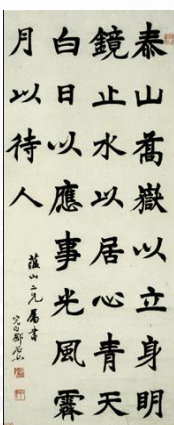 泰山喬嶽以立身明
鏡止水以居心青天
白日以應事光風霽
月以待人
蘊山二兄屬書